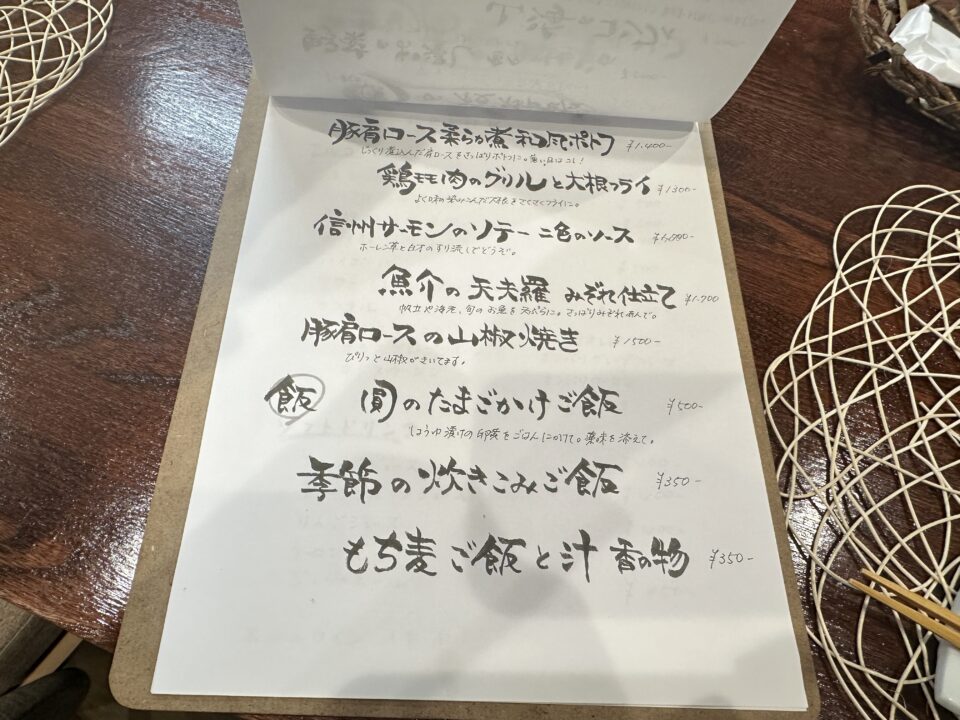 豚肩ロース柔らか煮和風ポトフ ¥1,400-
じっくり煮込んだ肩ロースをさっぱりポトフに。寒い日はコレ!
鶏モモ肉のグリルと大根フライ ¥1300-
よく味の染みこんだ大根をさくさくフライに。
信州サーモンのソテー 二色のソース
ホーレン草と白才のすり流しでどうぞ。
魚介の天夫羅 みぞれ仕立て ¥1.700
帆立や海老、旬のお魚を天ぷらに。さっぱりみぞれあんで。
豚肩ロースの山椒焼き ¥1500-
ぴりっと山椒がきいてます。
飯 圓のたまごかけご飯 ¥500-
しょうゆ漬けの卵黄をごはんにかけて。薬味を添えて。
季節の炊きこみご飯 ¥350-
もち麦ご飯と汁 香の物 ¥350-